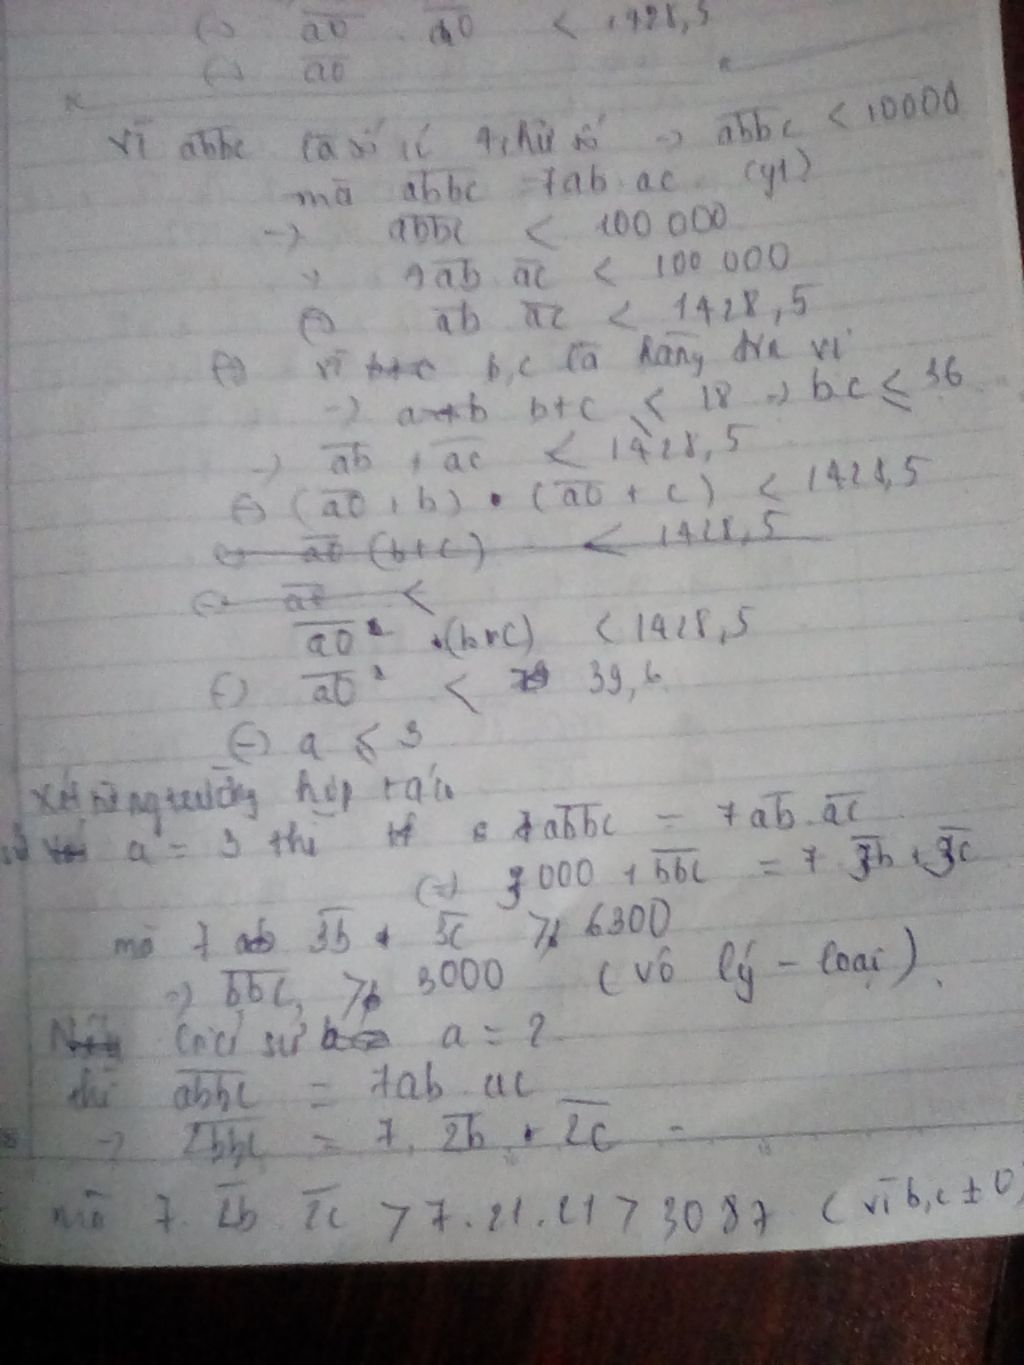 (=) a0 . a0 < 1428,5
(=) a0
vì abbc là số có 4 chữ số → abbc < 10000
mà abbc = 7ab . ac (gt)
→ abbc < 100 000
7 ab . ac < 100 000
(=) ab ac < 1428,5
(=) vì b+c b,c là hàng đơn vị
→ a+b b+c ≤ 18 → b.c ≤ 36
→ ab . ac < 1428,5
(=) (a0 + b) . (a0 + c) < 1428,5
(=) a0 (b+c) < 1428,5
(=) a0 <
a0² .(b+c) < 1428,5
(=) a0² < 39,6
(=) a ≤ 3
Xét từng trường hợp
với a = 3 thì abbc = 7ab . ac
(=) 3000 + bbc = 7 3b . 3c
mà 7 ab 3b . 3c ≥ 6300
=) bbc ≥ 3000 (vô lý - loại).
Giả sử a = 2
thì abbc = 7ab . ac
→ 2bbc = 7. 2b . 2c
mà 7. 2b . 2c > 7.21.21 > 3087 (vì b,c ≠ 0